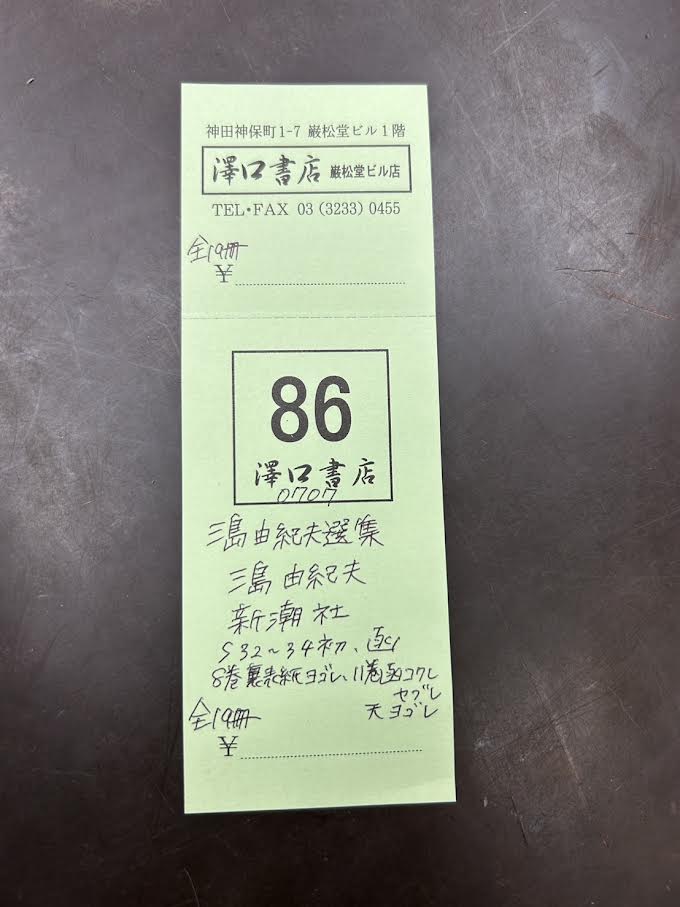 神田神保町1-7 巖松堂ビル1階
澤口書店 巖松堂ビル店
TEL・FAX 03(3233)0455
全19冊
¥
86
澤口書店
0707
三島由紀夫選集
三島由紀夫
新潮社
S32~34初、函
8巻裏表紙ヨゴレ、11巻函コワレ
ヤブレ
天ヨゴレ
全19冊
¥